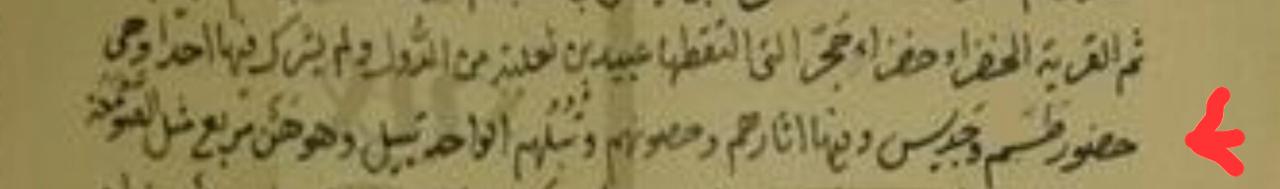 ثم القرية الخضراء خضراء حَجْر التى التقطها عبيد بن ثعلبة من الدُّول ولم يشرك فيها احدا وهى
حضور طَسْم وجَدِيس وفيها اثارهم وحصونهم وبُتُلُهم الواحد بتيل وهو هَنٌ مربع مثل الصَّوْمَعة